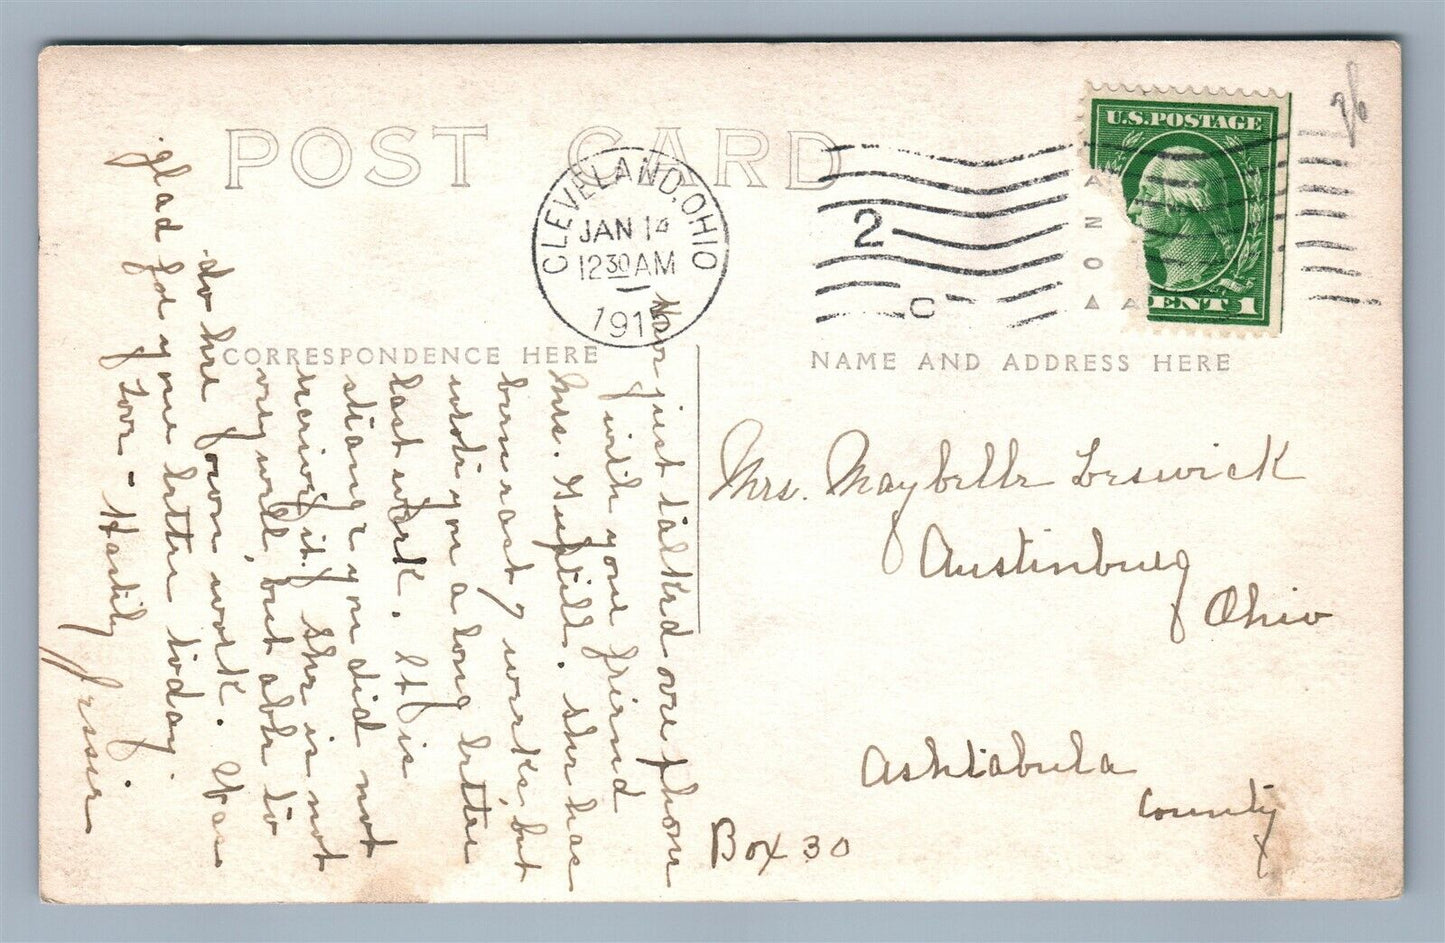 POST CARD
CLEVELAND, OHIO
JAN 14
12 30 AM
191
2
C
U.S. POSTAGE
ENT 1
26
CORRESPONDENCE HERE
NAME AND ADDRESS HERE
Have just talked over phone
with your friend
Mrs. Guptill. She has
been east 7 weeks, but
wrote you a long letter
last week. It is
strange you did not
receive it. She is not
very well, but able to
do her own work. Was
glad for your letter today.
Love - Hastily
Jessie
Mrs. Maybelle Leswick
Austinburg
Ohio
Ashtabula
County
Box 30